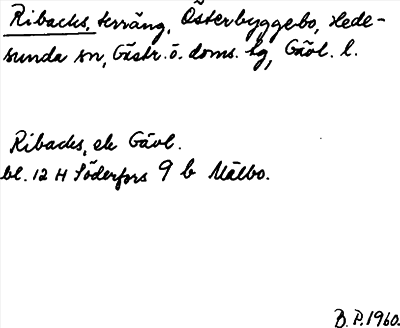 Ribacks, terräng, Österbyggebo, Hede-
sunda sn, Gästr. ö. doms. hg, Gävl. l.
Ribacks, ek Gävl.
bl. 12 H Söderfors 9 b Mälbo.
B. P. 1960.